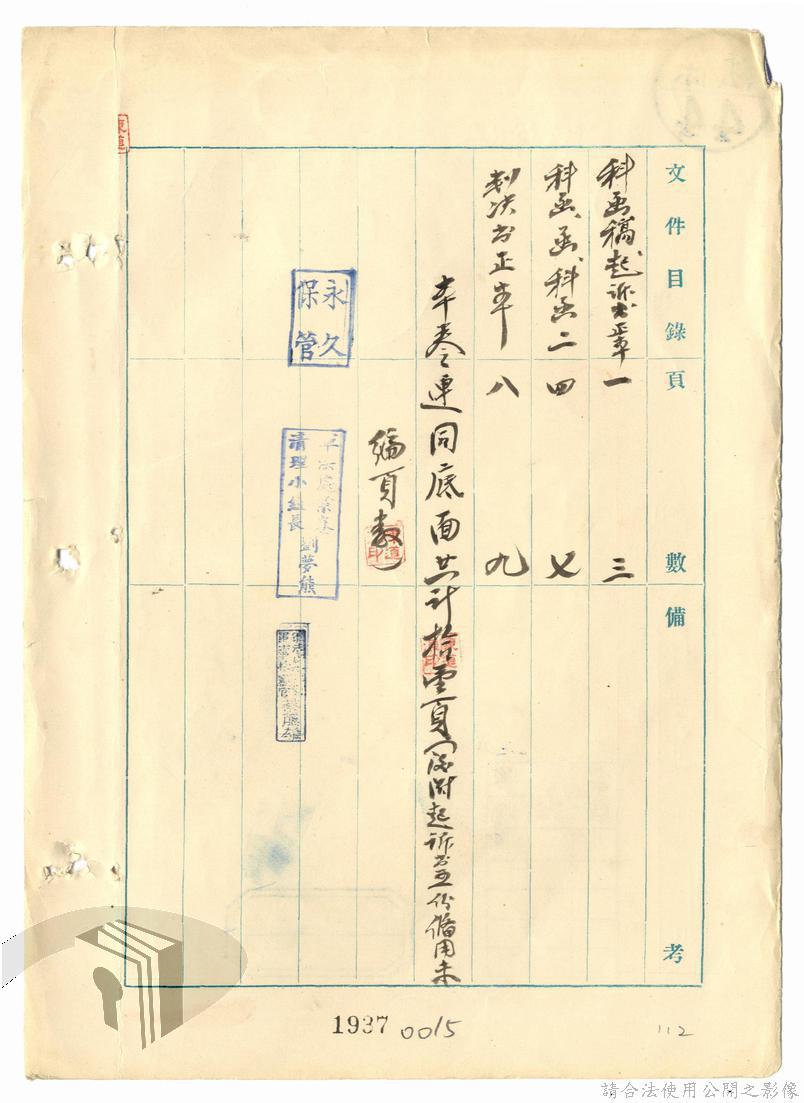 文件目錄頁數備考
科函稿起訴書正本一三
科函、函、科函二四七
判決書正本八九
本卷連同底面共計拾壹頁（後附起訴書五份備用未
編頁數）
永久
保管
軍法處案卷
清理小組長劉夢熊
1937
0015
112
請合法使用公開之影像